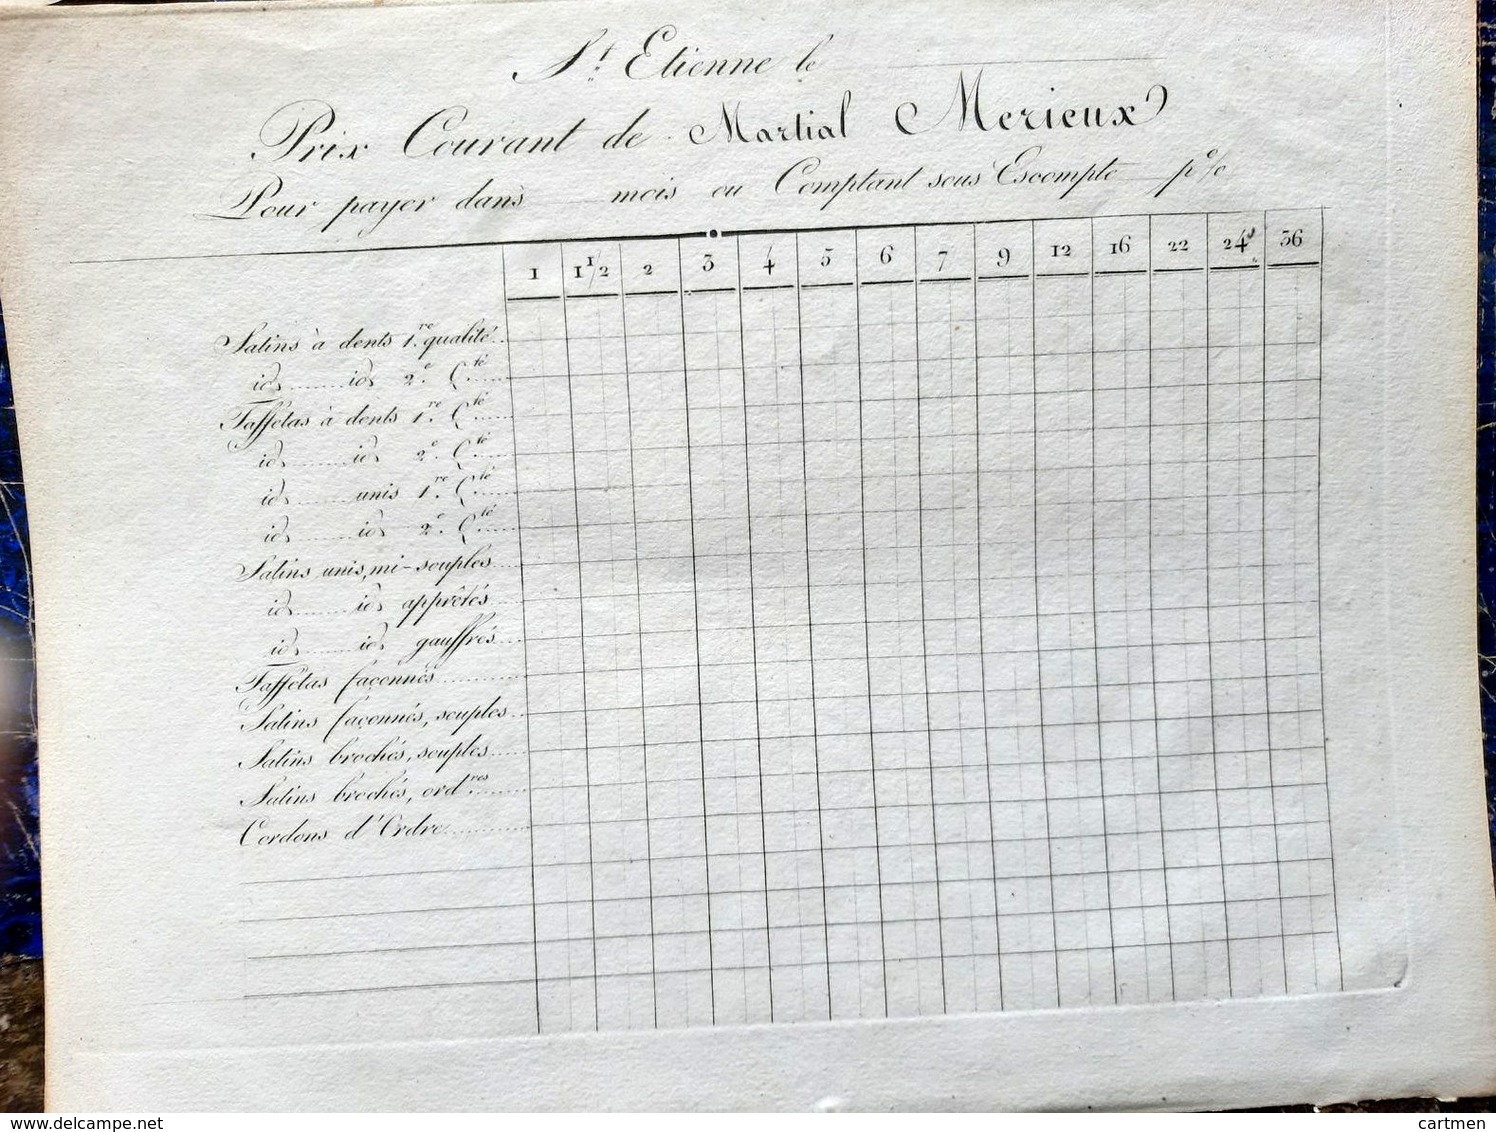 St Etienne le
Prix Courant de Martial Merieux
Pour payer dans mois ou Comptant sous Escompte p%
1 1 1/2 2 3 4 5 6 7 9 12 16 22 24 36
Satins à dents 1.re qualité
id. id. 2.e Qté
Taffetas à dents 1.re Qté
id. id. 2.e Qté
id. unis 1.re Qté
id. id. 2.e Qté
Satins unis, mi-souples
id. id. apprêtés
id. id. gauffrés
Taffetas façonnés
Satins façonnés, souples
Satins brochés, souples
Satins brochés, ord.res
Cordons d'Ordre
cartmen